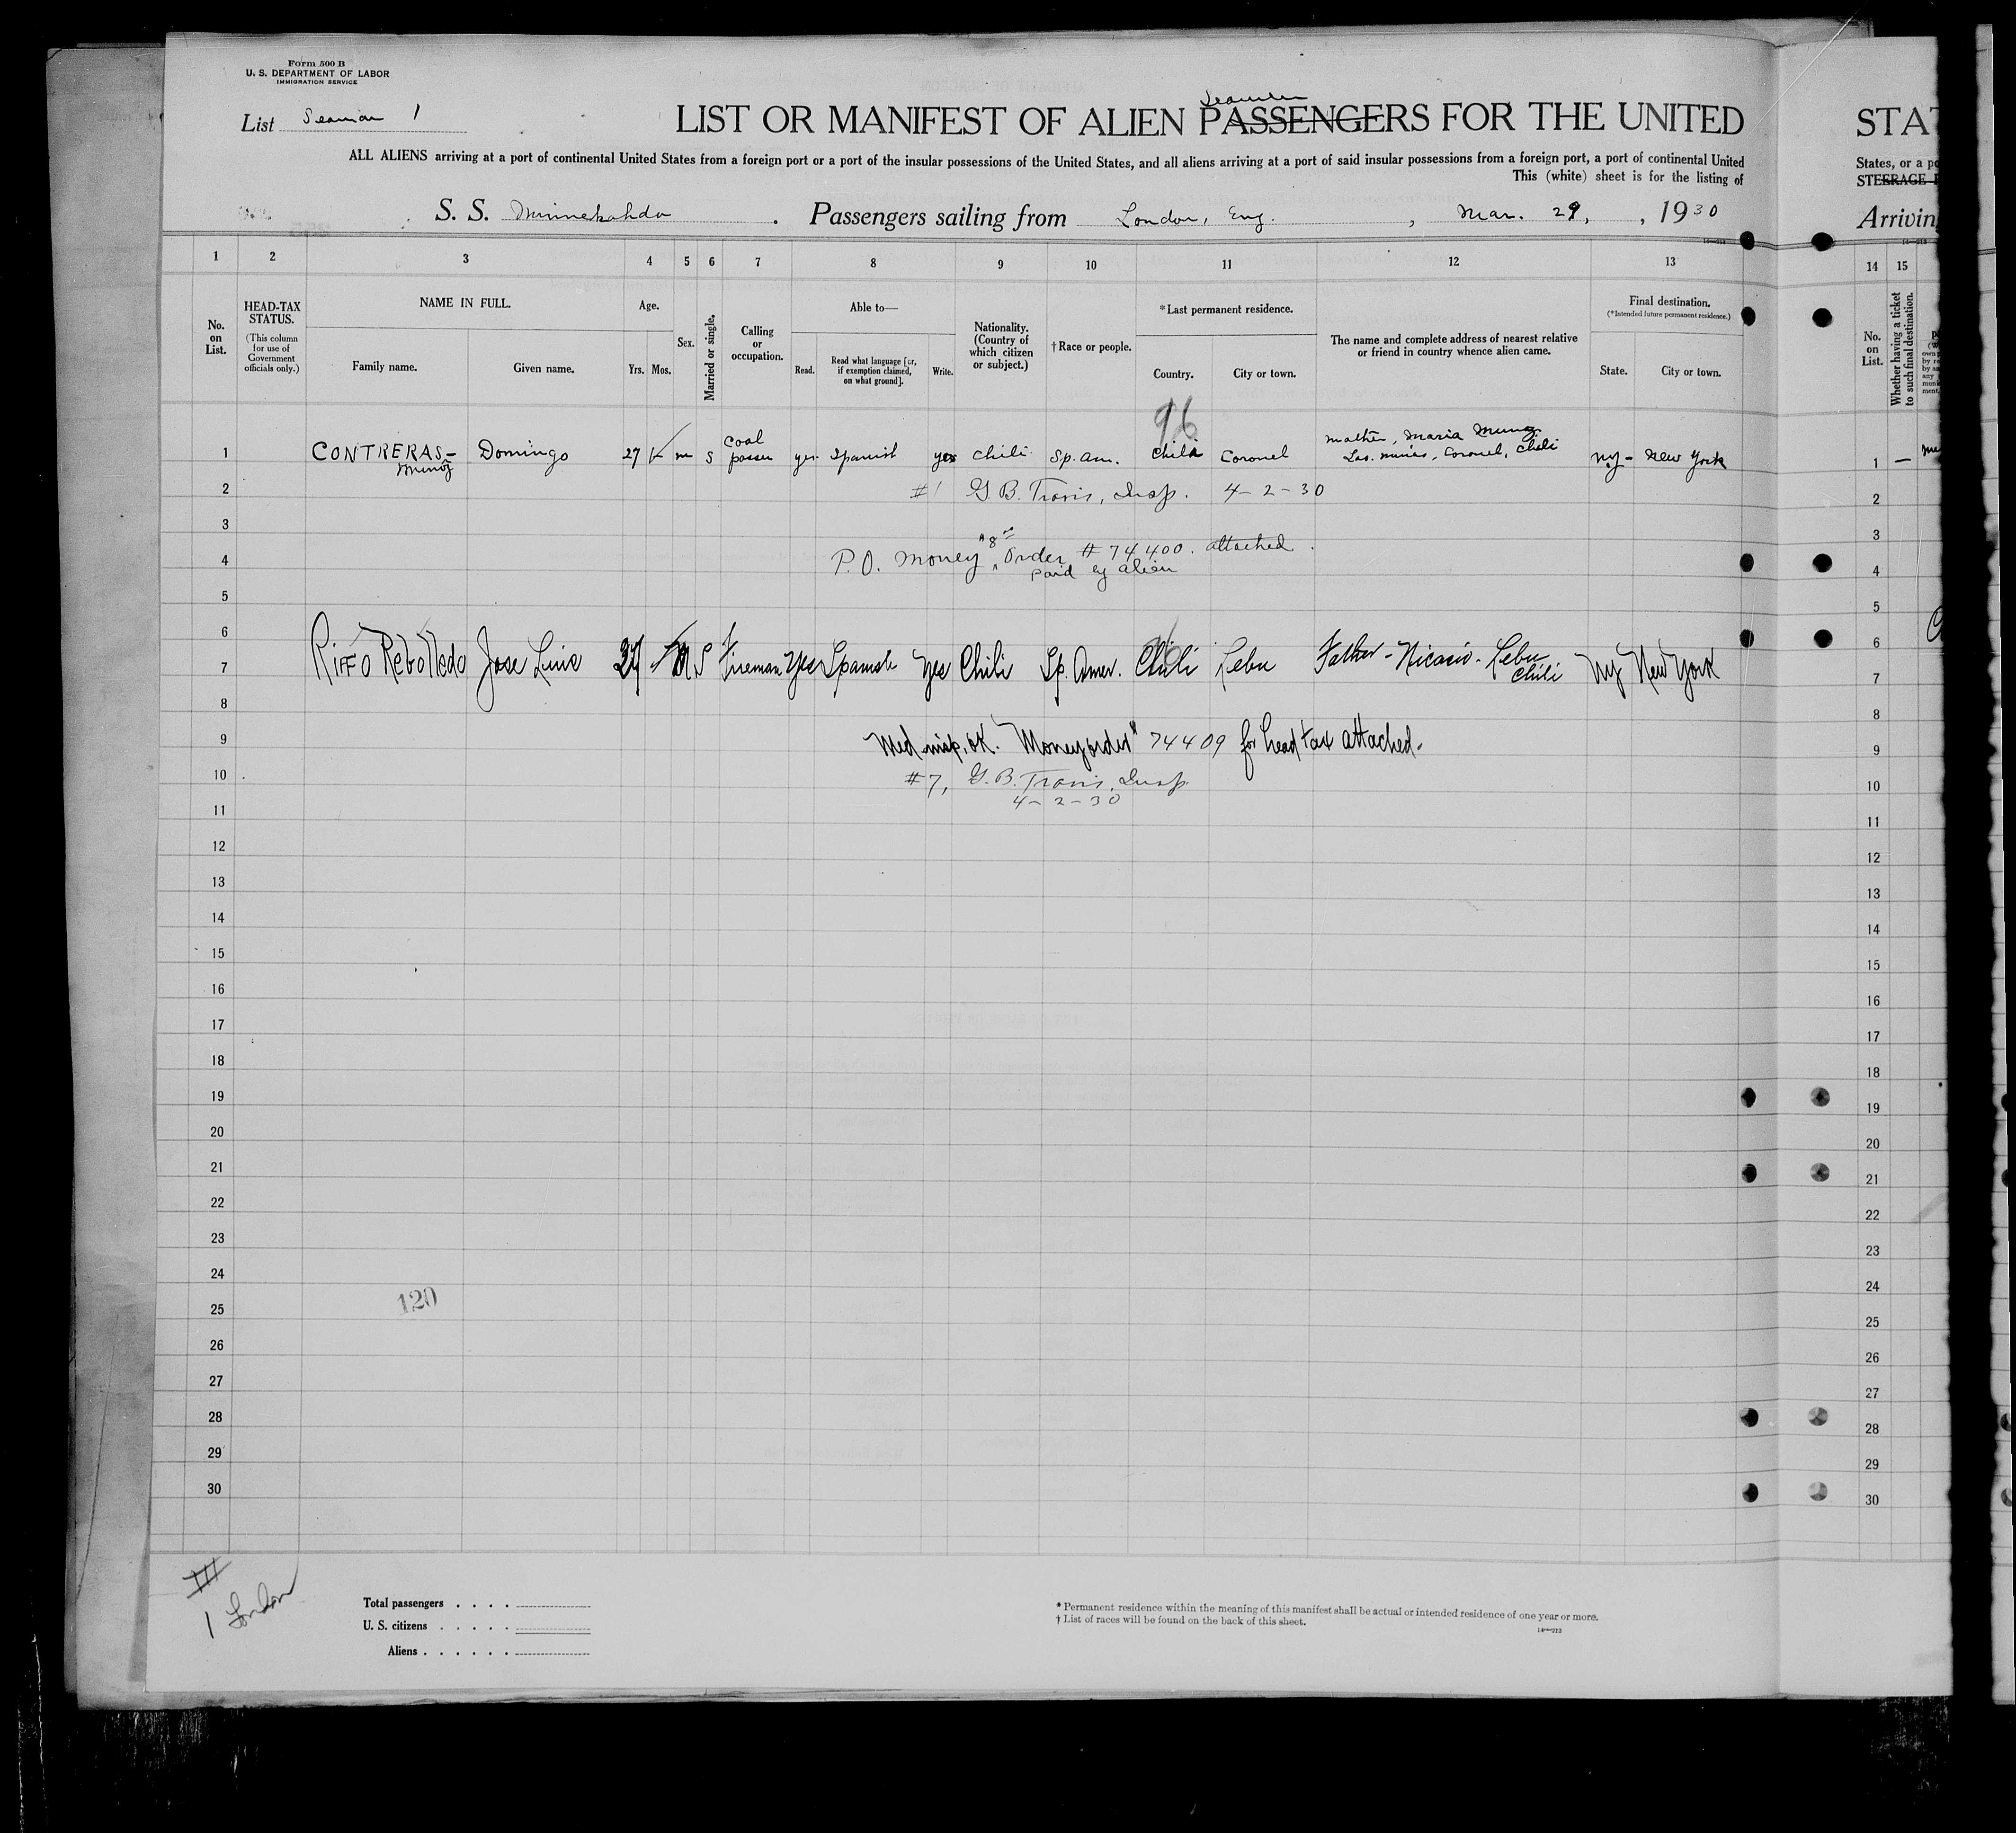 Form 500 B
U. S. DEPARTMENT OF LABOR
IMMIGRATION SERVICE
List Seaman 1
Seamen
LIST OR MANIFEST OF ALIEN PASSENGERS FOR THE UNITED
STAT
ALL ALIENS arriving at a port of continental United States from a foreign port or a port of the insular possessions of the United States, and all aliens arriving at a port of said insular possessions from a foreign port, a port of continental United
States, or a po
This (white) sheet is for the listing of
STEERAGE P
S. S. Minnekahda . Passengers sailing from London, Eng. , Mar. 29, , 1930
Arriving
1 2 3 4 5 6 7 8 9 10 11 12 13 14 15
No. on List.
HEAD-TAX STATUS.
(This column for use of Government officials only.)
NAME IN FULL.
Family name. Given name.
Age.
Yrs. Mos.
Sex.
Married or single.
Calling or occupation.
Able to—
Read. Read what language [or, if exemption claimed, on what ground]. Write.
Nationality. (Country of which citizen or subject.)
†Race or people.
*Last permanent residence.
Country. City or town.
The name and complete address of nearest relative or friend in country whence alien came.
Final destination.
(*Intended future permanent residence.)
State. City or town.
No. on List.
Whether having a ticket to such final destination.
96
1 CONTRERAS- Munoz Domingo 27 m s coal passer yes Spanish yes Chili Sp. Am. Chili Coronel mother, Maria Munoz Las minas, Coronel, Chili NY- New York 1 —
2 #1 G.B. Travis, Insp. 4-2-30 2
3 3
4 P.O. money "8" order #74400. attached. 4
paid by alien
5 5
6 6
7 Riffo Rebolledo Jose Luis 27 M S Fireman Yes Spanish Yes Chili Sp. Amer. Chili Lebu Father - Nicasio - Lebu Chili NY New York 7
8 8
9 Med insp. OK. Money order # 74409 for head tax attached. 9
10 #7, G.B. Travis, Insp 10
4-2-30
11 11
12 12
13 13
14 14
15 15
16 16
17 17
18 18
19 19
20 20
21 21
22 22
23 23
24 24
120
25 25
26 26
27 27
28 28
29 29
30 30
III
1 London
Total passengers . . . .
U. S. citizens . . . . .
Aliens . . . . . .
* Permanent residence within the meaning of this manifest shall be actual or intended residence of one year or more.
† List of races will be found on the back of this sheet.